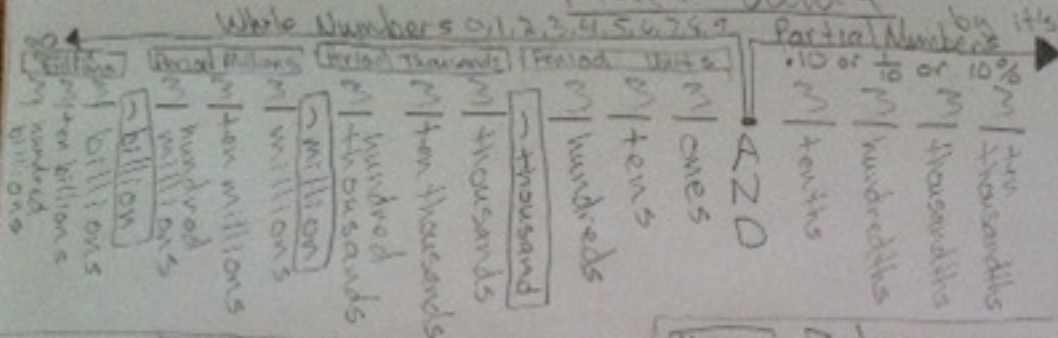 Whole Numbers 0,1,2,3,4,5,6,7,8,9
Partial Numbers by it's
.10 or 1/10 or 10%
∞
Billions
Period Millions
Period Thousands
Period Units
hundred billions
ten billions
billions
, billion
hundred millions
ten millions
millions
, million
hundred thousands
ten thousands
thousands
, thousand
hundreds
tens
ones
AND
tenths
hundredths
thousandths
ten thousandths